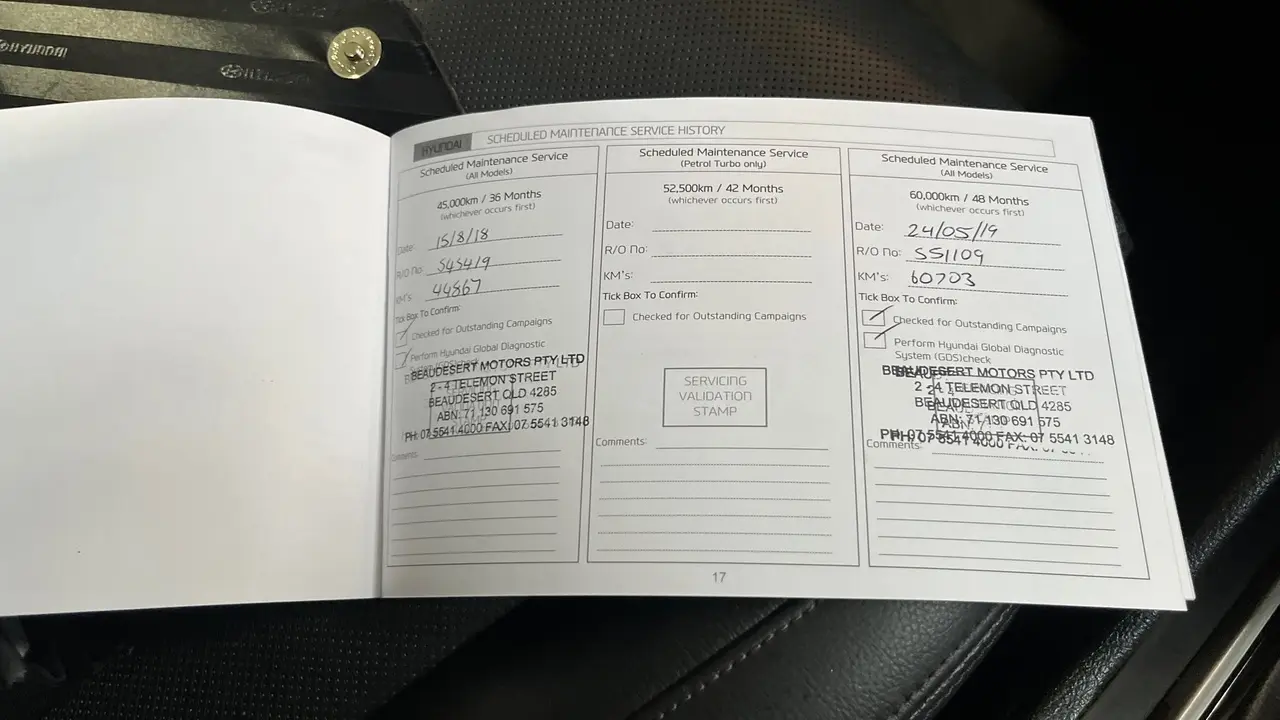 HYUNDAI
HYUNDAI
SCHEDULED MAINTENANCE SERVICE HISTORY
Scheduled Maintenance Service
(All Models)
45,000km / 36 Months
(whichever occurs first)
Date: 15/8/18
R/O No: 545419
KM's 44867
Tick Box To Confirm:
Checked for Outstanding Campaigns
Perform Hyundai Global Diagnostic
System (GDS)check
BEAUDESERT MOTORS PTY LTD
2 - 4 TELEMON STREET
BEAUDESERT QLD 4285
ABN: 71 130 691 575
PH: 07 5541 4000 FAX: 07 5541 3148
Comments:
Scheduled Maintenance Service
(Petrol Turbo only)
52,500km / 42 Months
(whichever occurs first)
Date:
R/O No:
KM's:
Tick Box To Confirm:
Checked for Outstanding Campaigns
SERVICING
VALIDATION
STAMP
Comments:
Scheduled Maintenance Service
(All Models)
60,000km / 48 Months
(whichever occurs first)
Date: 24/05/19
R/O No: 551109
KM's: 60703
Tick Box To Confirm:
Checked for Outstanding Campaigns
Perform Hyundai Global Diagnostic
System (GDS)check
BEAUDESERT MOTORS PTY LTD
2 - 4 TELEMON STREET
BEAUDESERT QLD 4285
ABN: 71 130 691 575
PH: 07 5541 4000 FAX: 07 5541 3148
Comments:
17